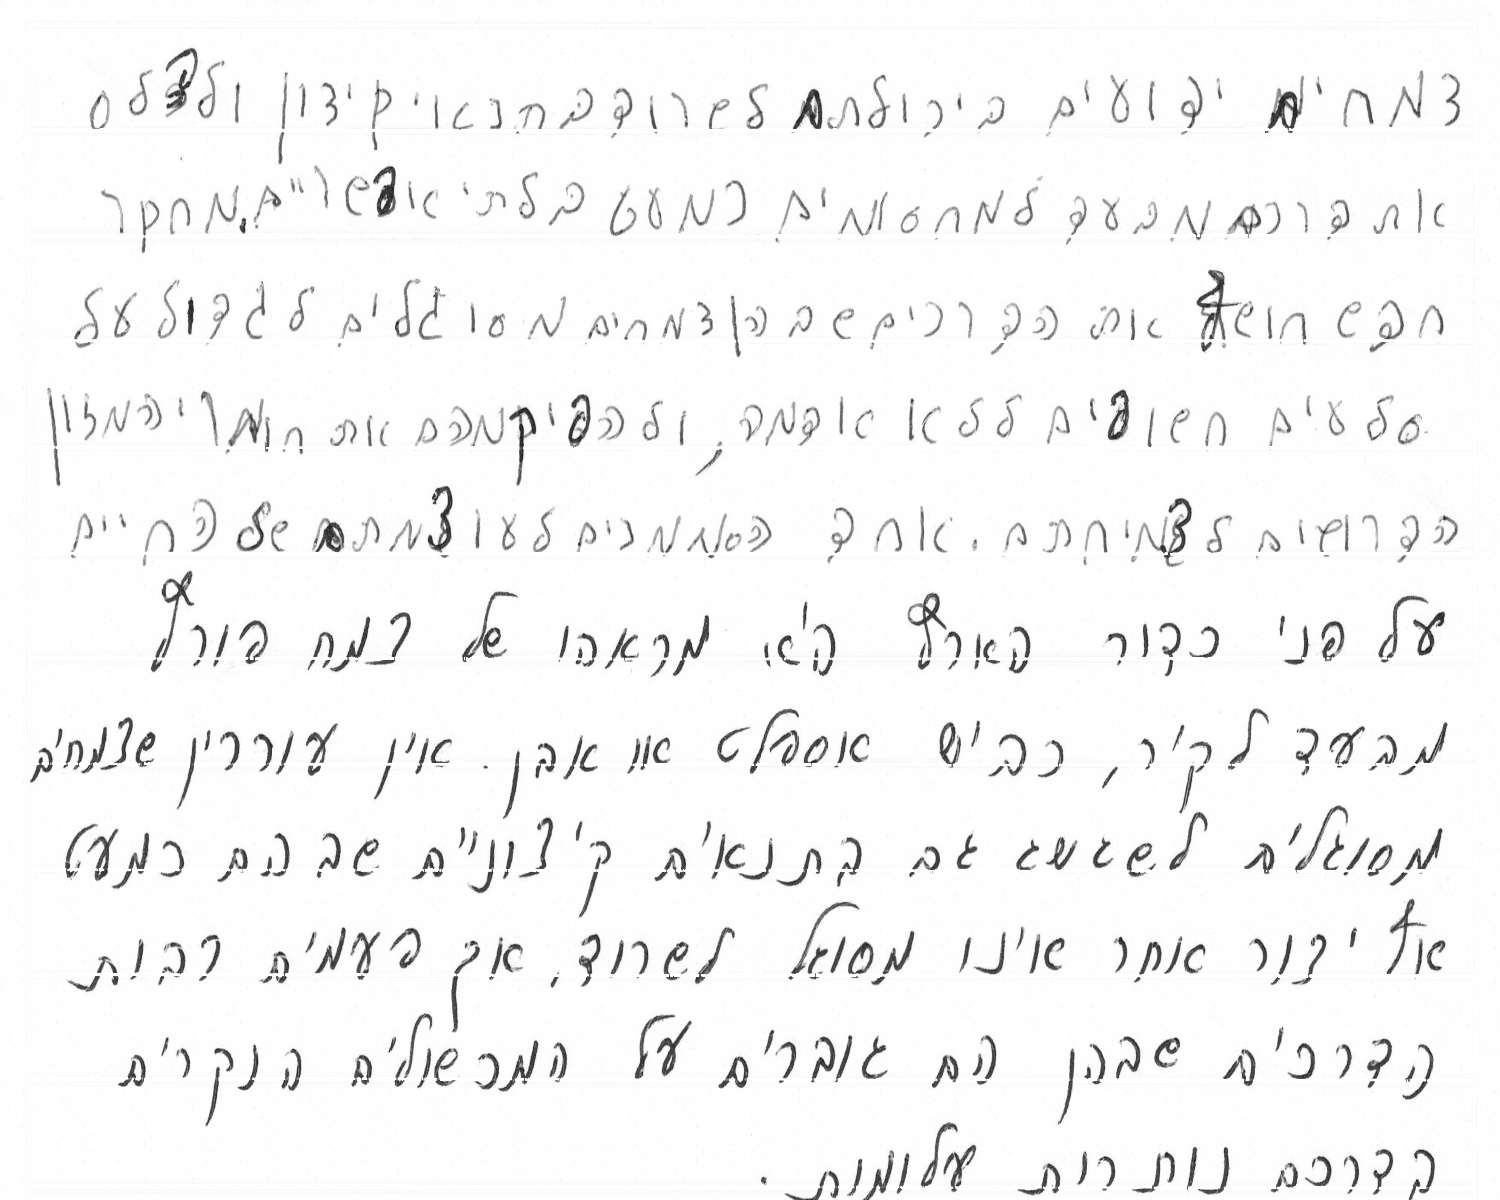 צמחים ידועים ביכולתם לשרוד בתנאי קיצון ולפלס
את דרכם מבעד למחסומים כמעט בלתי אפשריים. מחקר
חדש חושף את הדרכים שבהן צמחים מסוגלים לגדול על
סלעים חשופים ללא אדמה, ולהפיק מהם את חומרי המזון
הדרושים לצמיחתם. אחד הסממנים לעוצמתם של החיים
על פני כדור הארץ היא מראהו של צמח פורץ
מבעד לקיר, כביש אספלט או אבן. אין עוררין שצמחים
מסוגלים לשגשג גם בתנאים קיצוניים שבהם כמעט
אף יצור אחר אינו מסוגל לשרוד, אך פעמים רבות
הדרכים שבהן הם גוברים על המכשולים הנקרים
בדרכם נותרות עלומות.